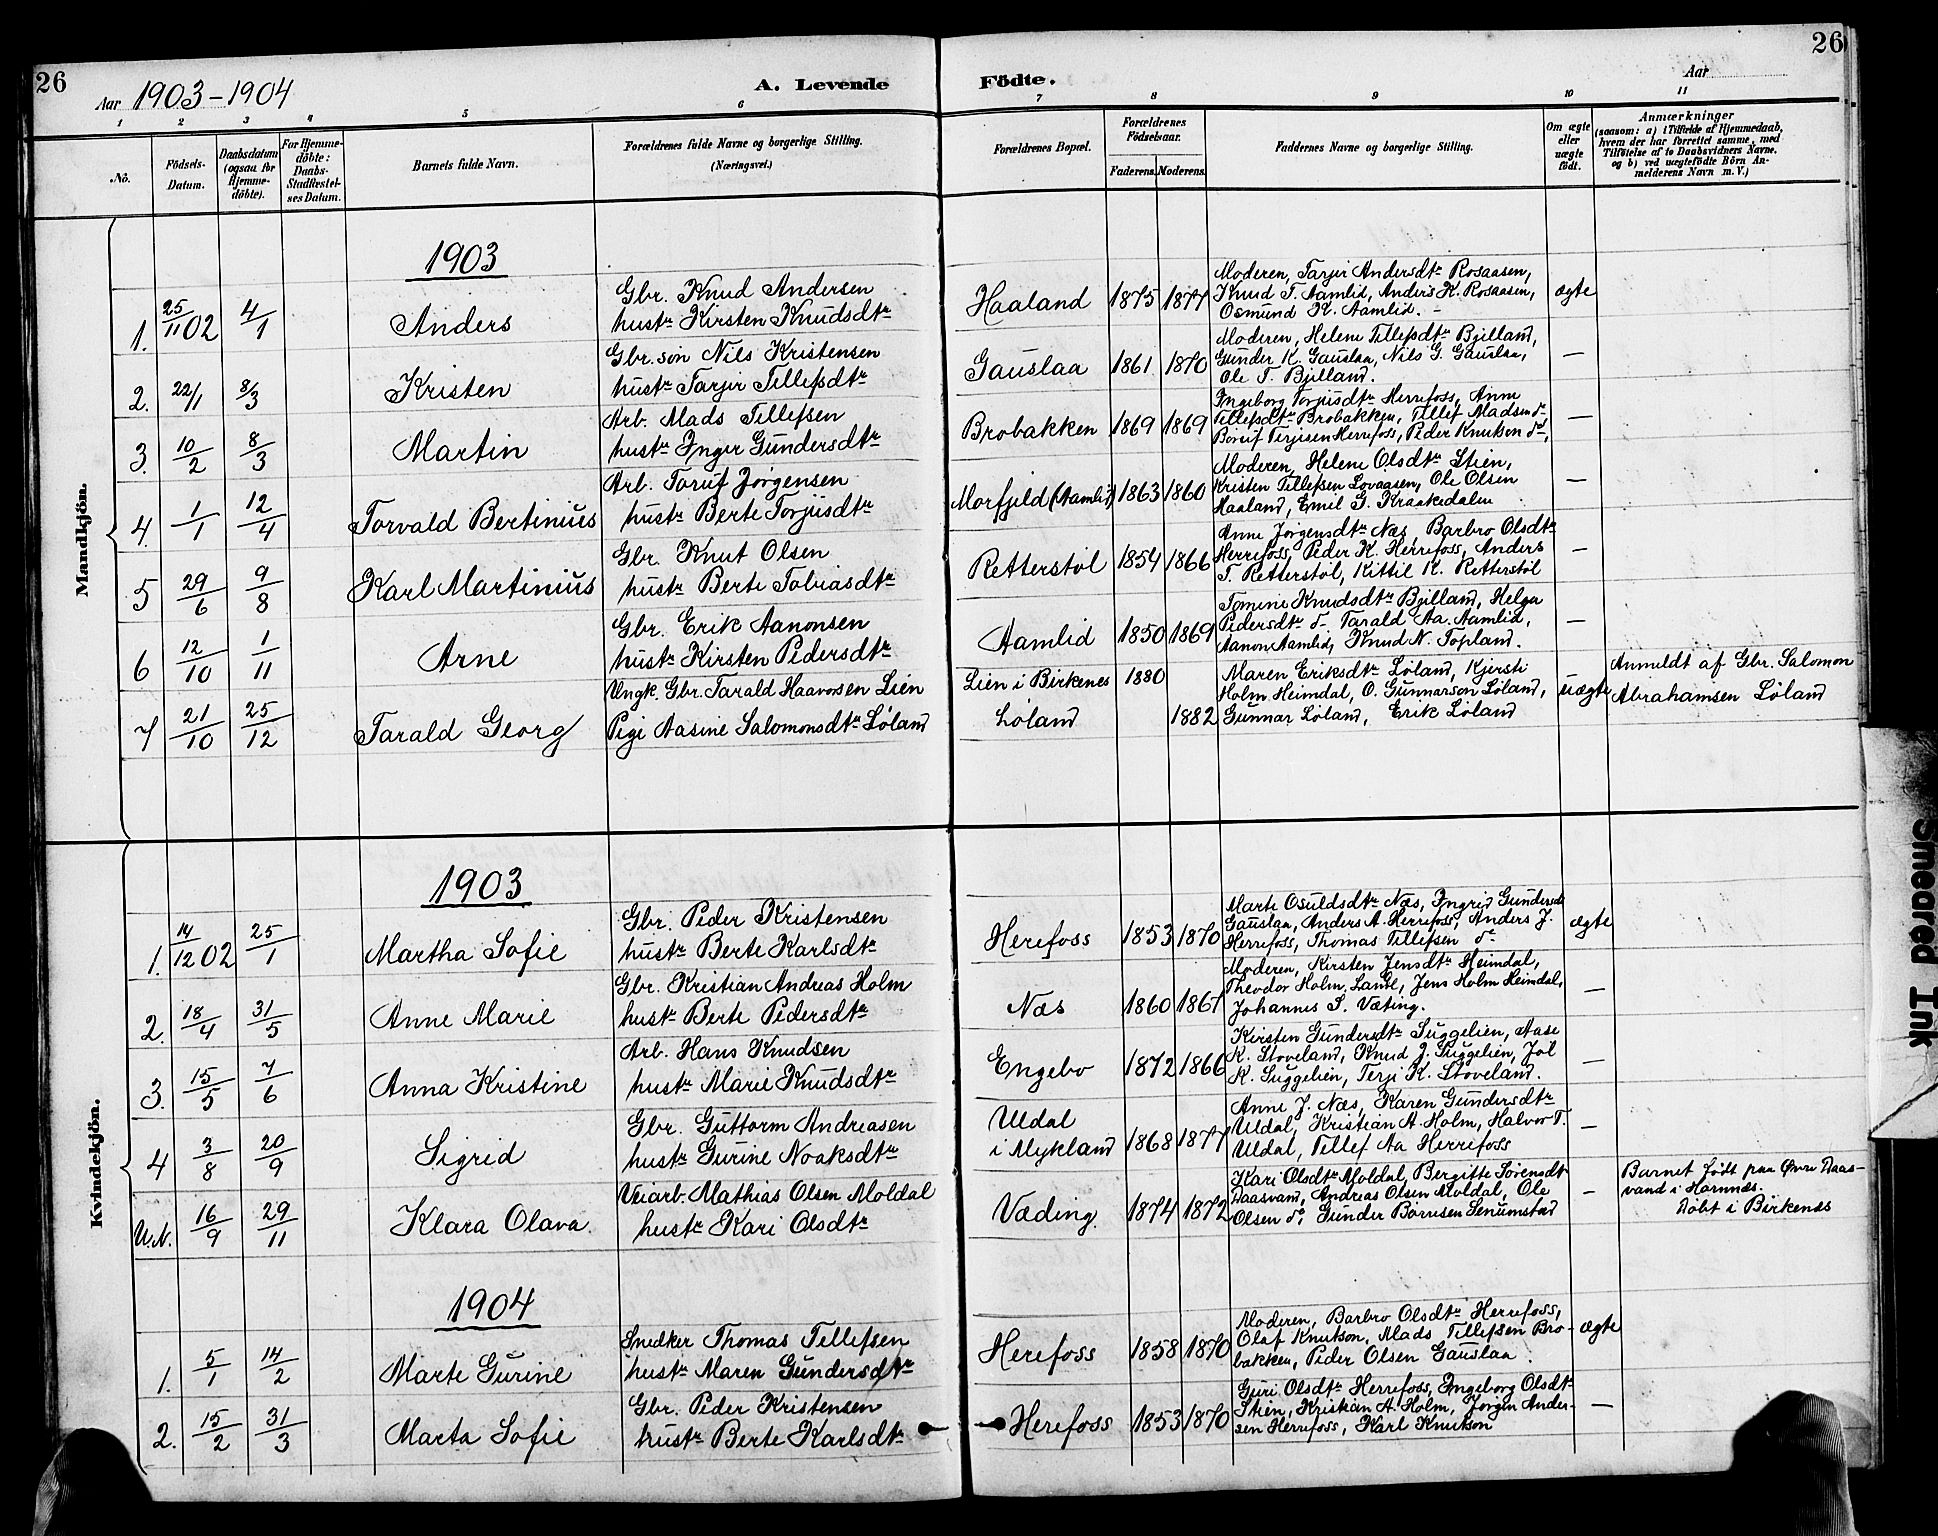 26
26
Aar 1903-1904
A. Levende Födte.
Aar
1 2 3 4 5 6 7 8 9 10 11
No.
Födsels-
Datum.
Daabsdatum
(ogsaa for
Hjemme-
döbte).
For Hjemme-
döbte:
Daabs-
Stadfæstel-
ses Datum.
Barnets fulde Navn.
Forældrenes fulde Navne og borgerlige Stilling.
(Næringsvei.)
Forældrenes Bopæl.
Forældrenes
Födselsaar.
Faderens. Moderens.
Faddernes Navne og borgerlige Stilling.
Om ægte
eller
uægte
födt.
Anmærkninger
(saasom: a) i Tilfælde af Hjemmedaab,
hvem der har forrettet samme, med
Tilföielse af to Daabsvidners Navne.
og b) ved uægtefödte Börn An-
melderens Navn m. V.)
Mandkjön.
1903
1. 25/11 02 4/1 Anders
Gbr. Knud Andersen
hustr Kirsten Knudsdtr
Haaland 1875 1877
Moderen, Tarjer Andersdtr Rosaasen,
Knud T. Aamlid, Anders K. Rosaasen,
Osmund K. Aamlid. -
ægte
2. 22/1 8/3 Kristen
Gbr. søn Nils Kristensen
hustr Tarjer Tellefsdtr
Gauslaa 1861 1870
Moderen, Helene Tellefsdtr Bjelland,
Gunder K. Gauslaa, Nils G. Gauslaa,
Ole T. Bjelland.
—
3. 10/2 8/3 Martin
Arb. Mads Tellefsen
hustr Inger Gundersdtr
Brobakken 1869 1869
Ingeborg Torjusdtr Herrefoss, Anne
Tellefsdtr Brobakken, Tellef Madsen do
Terjesen Herrefoss, Peder Knutson do,
—
4. 1/1 12/4 Torvald Bertinius
Arb. Jørgensen
hustr Berte Torjusdtr
Morfjeld (Aamli) 1863 1860
Moderen, Helene Olsdtr Stien,
Kristen Tellefsen Lovaasen, Ole Olsen
Haaland, Emil G. Kraakedalen
—
5 29/6 9/8 Karl Martinius
Gbr. Knut Olsen
hustr Berte Tobiasdtr
Retterstøl 1854 1866
Anne Jørgensdtr Næs, Barbro Olsdtr
Herrefoss, Peder K. Herrefoss, Anders
T. Retterstøl, Kittil K. Retterstøl
—
6 12/10 1/11 Arne
Gbr. Erik Aanonsen
hustr Kirsten Pedersdtr
Aamlid 1850 1869
Tomine Knudsdtr Bjelland, Helga
Pedersdtr do Tarald Aa. Aamlid,
Aanon Aamlid, Knud N. Topland.
—
7 21/10 25/12 Tarald Georg
Ungk. Gbr. Tarald Haavorsen Lien
Pige Aasine Salomonsdtr Løland
Lien i Birkenes 1880
Løland 1882
Maren Eriksdtr Løland, Kjersti
Holm Heimdal, O. Gunnarson Løland,
Gunnar Løland, Erik Løland
uægte
Anmeldt af Gbr. Salomon
Abrahamsen Løland
Kvindekjön.
1903
1. 14/12 02 25/1 Martha Sofie
Gbr. Peder Kristensen
hustr Berte Karlsdtr
Herefoss 1853 1870
Marte Osuldsdtr Næs, Ingrid Gundersdtr
Gauslaa, Anders A. Herrefoss, Anders J.
Herrefoss, Thomas Tellefsen do
ægte
2. 18/4 31/5 Anne Marie
Gbr. Kristian Andreas Holm
hustr Berte Pedersdtr
Næs 1860 1867
Moderen, Kirsten Jensdtr Heimdal,
Theodor Holm, Jens Holm Heimdal,
Johannes S. Væting.
—
3. 15/5 7/6 Anna Kristine
Arb. Hans Knudsen
hustr Marie Knudsdtr
Engebo 1872 1866
Kirsten Gundersdtr Suggelien, Aase
K. Støveland, Knud J. Suggelien, Jol
K. Suggelien, Terje K. Støveland.
—
4 3/8 20/9 Sigrid
Gbr. Guttorm Andreasen
hustr Gurine Noaksdtr
Udal
i Mykland 1868 1877
Anne J. Næs, Karen Gundersdtr
Uldal, Kristian A. Holm, Halvor T.
Uldal, Tellef Aa Herrefoss
—
U.N. 16/9 29/11 Klara Olava
Veiarb. Mathias Olsen Moldal
hustr Kari Olsdtr
Væding. 1874 1872
Kari Olsdtr Moldal, Bergitte Sørensdtr
Daasvand, Andreas Olsen Moldal, Ole
Olsen do, Gunder Børresen Senumstad
—
Barnet født paa Øvre Daas-
vand i Hornnes.
Døbt i Birkenes
1904
1. 5/1 14/2 Marte Gurine
Snedker Thomas Tellefsen
hustr Maren Gundersdtr
Herefoss 1858 1870
Moderen, Barbro Olsdtr Herrefoss,
Olaf Knutson, Mads Tellefsen Bro-
bakken, Peder Olsen Gauslaa.
ægte
2. 15/2 31/3 Marta Sofie
Gbr. Peder Kristensen
hustr Berte Karlsdtr
Herefoss 1853 1870
Guri Olsdtr Herrefoss, Ingeborg Olsdtr
Stien, Kristian A. Holm, Jørgen Ander-
sen Herrefoss, Karl Knutson
—
Smeared Ink